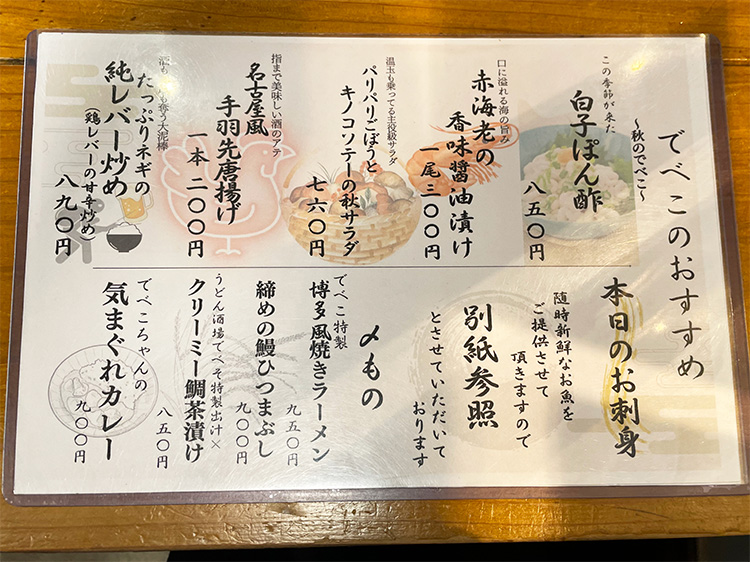 でべこのおすすめ
〜秋のでべこ〜
この季節が来た
白子ぽん酢
八五〇円
口に溢れる海の旨み
赤海老の
香味醤油漬け
一尾三〇〇円
温玉も乗ってる主役級サラダ
パリパリごぼうと
キノコソテーの秋サラダ
七六〇円
指まで美味しい酒のアテ
名古屋風
手羽先唐揚げ
一本二〇〇円
を奪う大泥棒
たっぷりネギの
純レバー炒め
(鶏レバーの甘辛炒め)
八九〇円
本日のお刺身
随時新鮮なお魚を
ご提供させて
頂きますので
別紙参照
とさせていただいて
おります
〆もの
でべこ特製
博多風焼きラーメン
九五〇円
締めの鰻ひつまぶし
九〇〇円
うどん酒場でべそ特製出汁×
クリーミー鯛茶漬け
八五〇円
でべこちゃんの
気まぐれカレー
九〇〇円